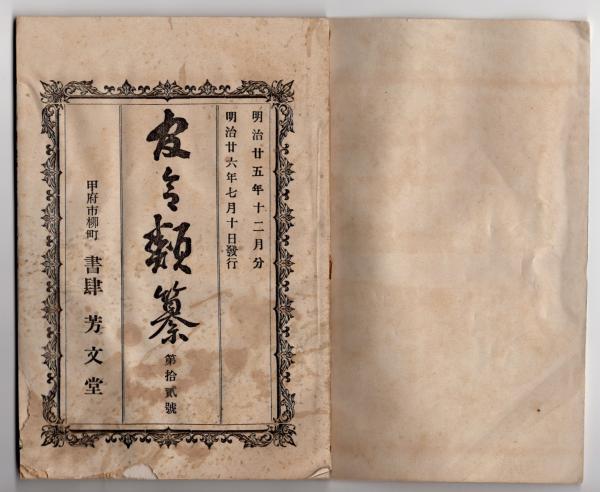 明治廿五年十二月分
明治廿六年七月十日發行
官令類纂 第拾貳號
甲府市柳町 書肆 芳文堂